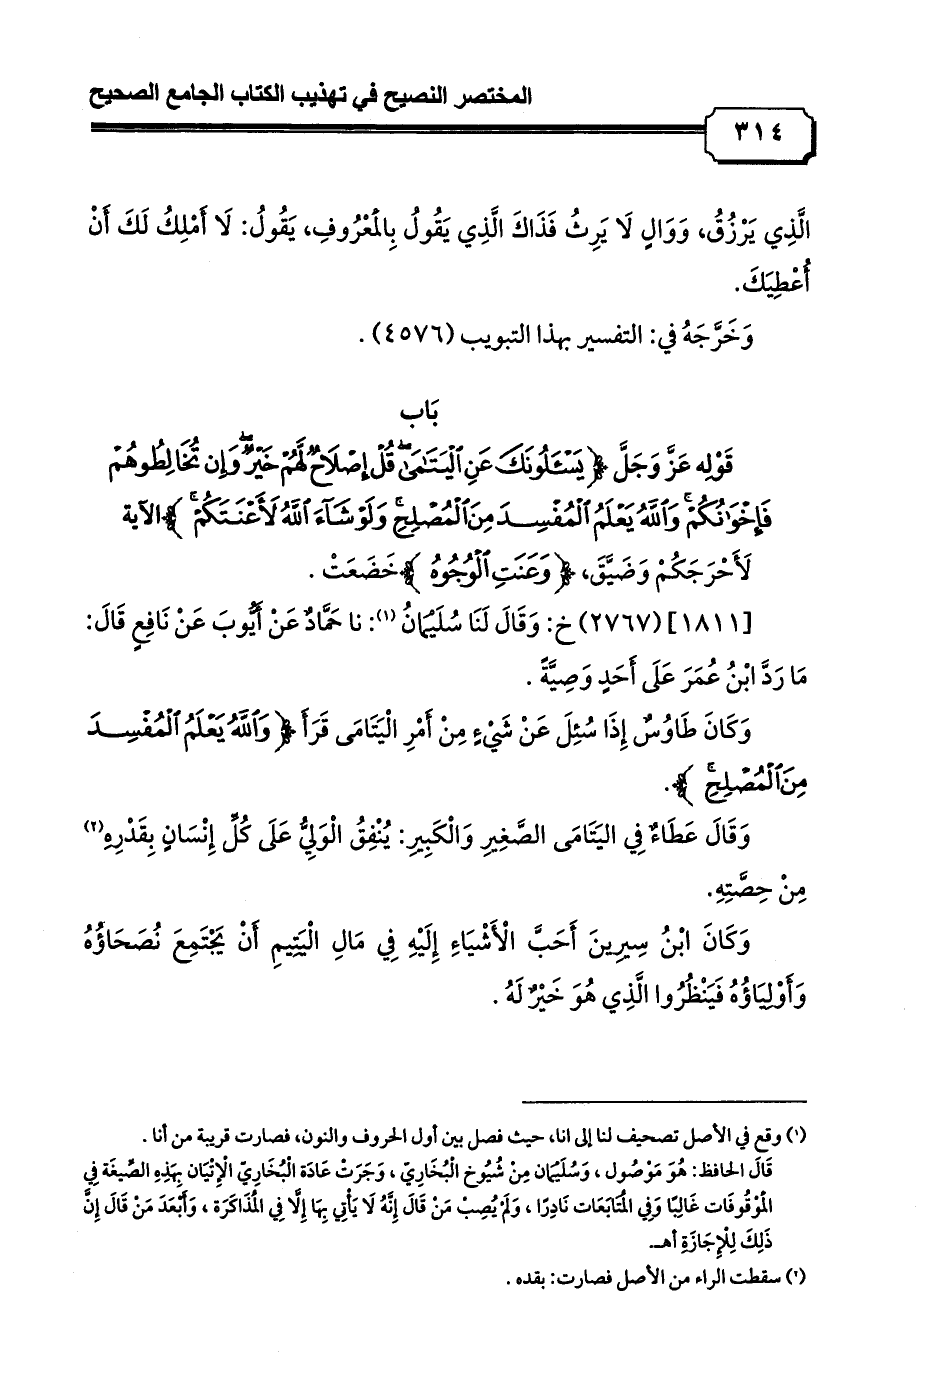 المختصر النصيح في تهذيب الكتاب الجامع الصحيح
٣١٤
الَّذِي يَرْزُقُ، وَوَالٍ لَا يَرِثُ فَذَاكَ الَّذِي يَقُولُ بِالمْعْرُوفِ، يَقُولُ: لَا أَمْلِكُ لَكَ أَنْ
أُعْطِيَكَ.
وَخَرَّجَهُ في: التفسير بهذا التبويب (٤٥٧٦) .
بَاب
قَوْلِه عَزَّ وَجَلَّ ﴿ يَسْـَٔلُونَكَ عَنِ ٱلْيَتَٰمَىٰۖ قُلْ إِصْلَاحٌ لَّهُمْ خَيْرٌۖ وَإِن تُخَالِطُوهُمْ
فَإِخْوَٰنُكُمْۚ وَٱللَّهُ يَعْلَمُ ٱلْمُفْسِدَ مِنَ ٱلْمُصْلِحِۚ وَلَوْ شَآءَ ٱللَّهُ لَأَعْنَتَكُمْۚ ﴾ الآية
لَأَحْرَجَكُمْ وَضَيَّقَ، ﴿ وَعَنَتِ ٱلْوُجُوهُ ﴾ خَضَعَتْ .
[١٨١١] (٢٧٦٧) خ: وَقَالَ لَنَا سُلَيْمَانُ (١): نا حَمَّادٌ عَنْ أَيُّوبَ عَنْ نَافِعٍ قَالَ:
مَا رَدَّ ابْنُ عُمَرَ عَلَى أَحَدٍ وَصِيَّةً .
وَكَانَ طَاوُسٌ إِذَا سُئِلَ عَنْ شَيْءٍ مِنْ أَمْرِ الْيَتَامَى قَرَأَ ﴿ وَٱللَّهُ يَعْلَمُ ٱلْمُفْسِدَ
مِنَ ٱلْمُصْلِحِۚ ﴾.
وَقَالَ عَطَاءٌ فِي اليَتَامَى الصَّغِيرِ وَالْكَبِيرِ: يُنْفِقُ الْوَلِيُّ عَلَى كُلِّ إِنْسَانٍ بِقَدْرِهِ(٢)
مِنْ حِصَّتِهِ.
وَكَانَ ابْنُ سِيرِينَ أَحَبَّ الْأَشْيَاءِ إِلَيْهِ فِي مَالِ الْيَتِيمِ أَنْ يَجْتَمِعَ نُصَحَاؤُهُ
وَأَوْلِيَاؤُهُ فَيَنْظُرُوا الَّذِي هُوَ خَيْرٌ لَهُ .
(١) وقع في الأصل تصحيف لنا إلى انا، حيث فصل بين أول الحروف والنون، فصارت قريبة من أنا .
قَالَ الحافظ: هُوَ مَوْصُول ، وَسُلَيْمَان مِنْ شُيُوخ الْبُخَارِيّ ، وَجَرَتْ عَادَة الْبُخَارِيّ الْإِتْيَان بِهَذِهِ الصِّيغَة فِي
المْوْقُوفَات غَالِبًا وَفِي المُتَابَعَات نَادِرًا ، وَلَمْ يُصِبْ مَنْ قَالَ إِنَّهُ لَا يَأْتِي بِهَا إِلَّا فِي المُذَاكَرَة ، وَأَبْعَدَ مَنْ قَالَ إِنَّ
ذَلِكَ لِلْإِجَازَةِ أهـ.
(٢) سقطت الراء من الأصل فصارت: بقده .